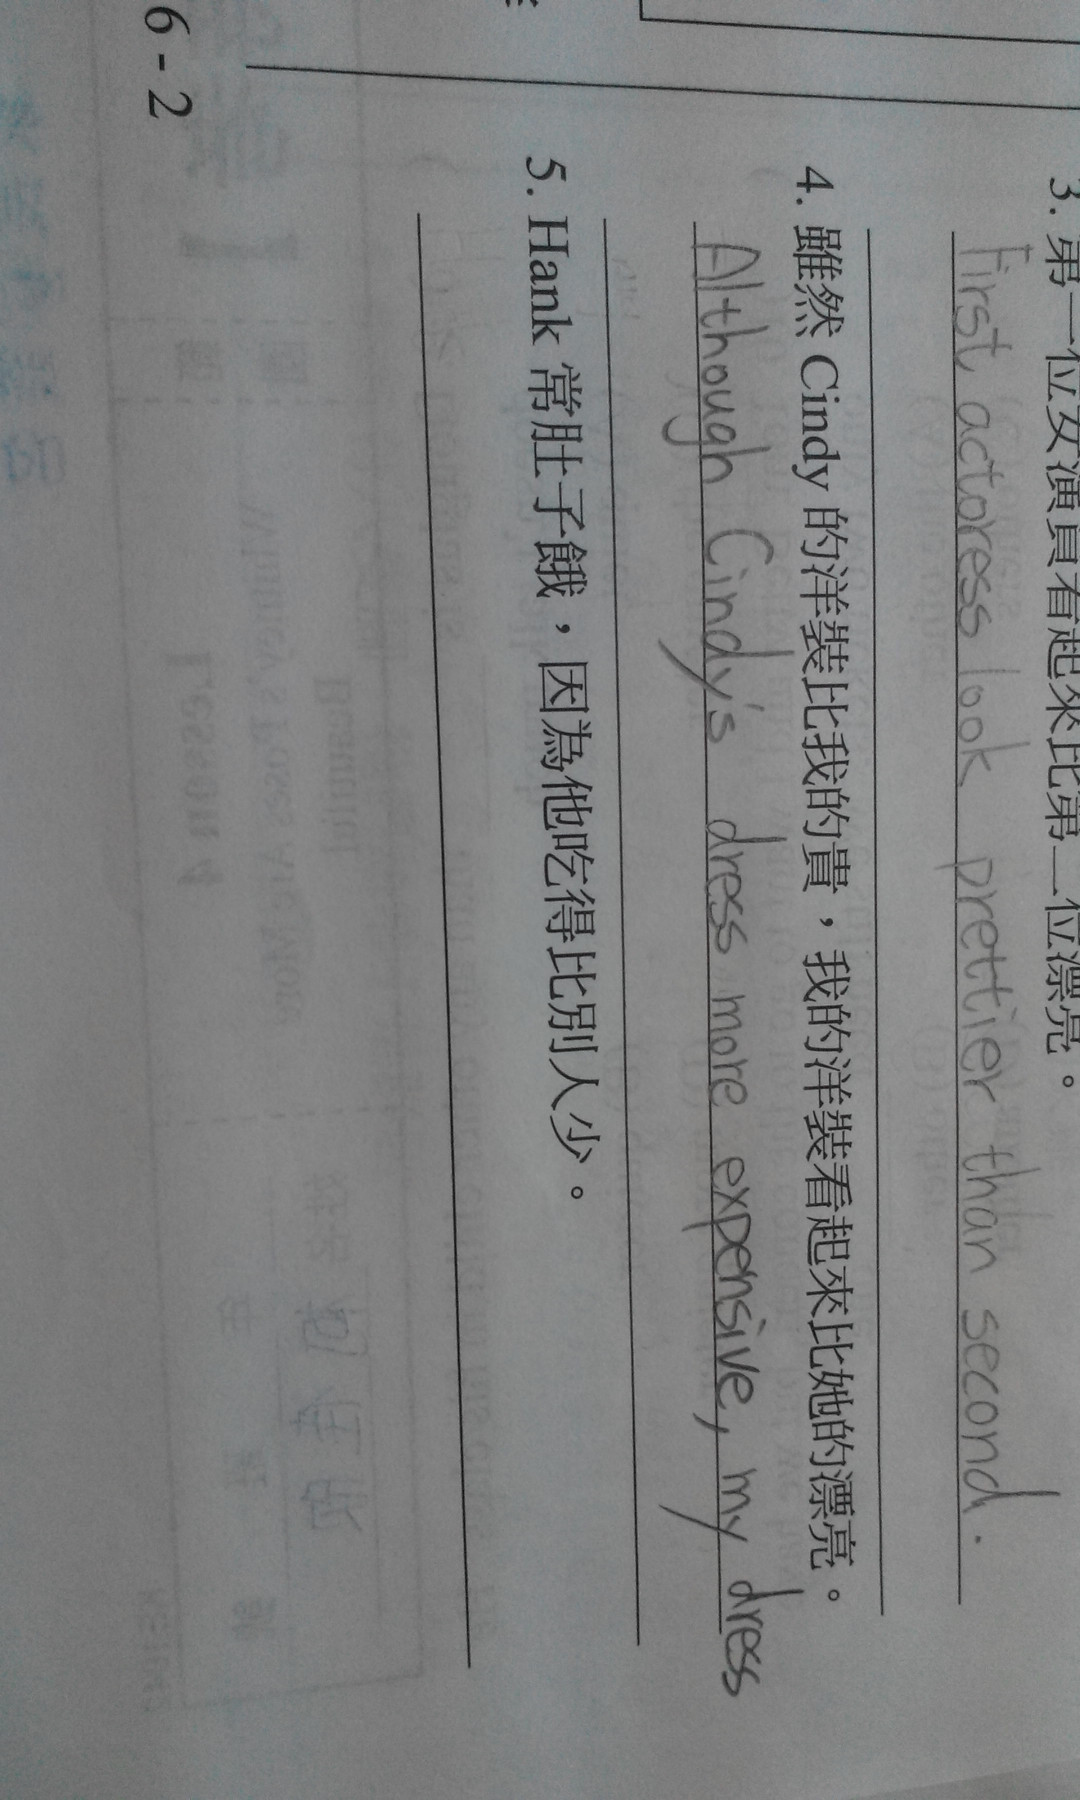 3. 第一位女演員看起來比第二位漂亮。
First actoress look prettier than second.
4. 雖然 Cindy 的洋裝比我的貴，我的洋裝看起來比她的漂亮。
Although Cindy's dress more expensive, my dress
5. Hank 常肚子餓，因為他吃得比別人少。
6-2